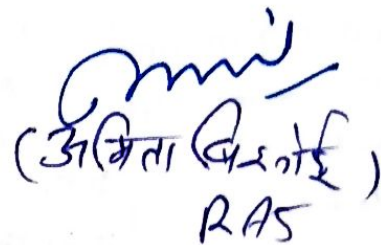 (अमिता बिश्नोई)
RAS